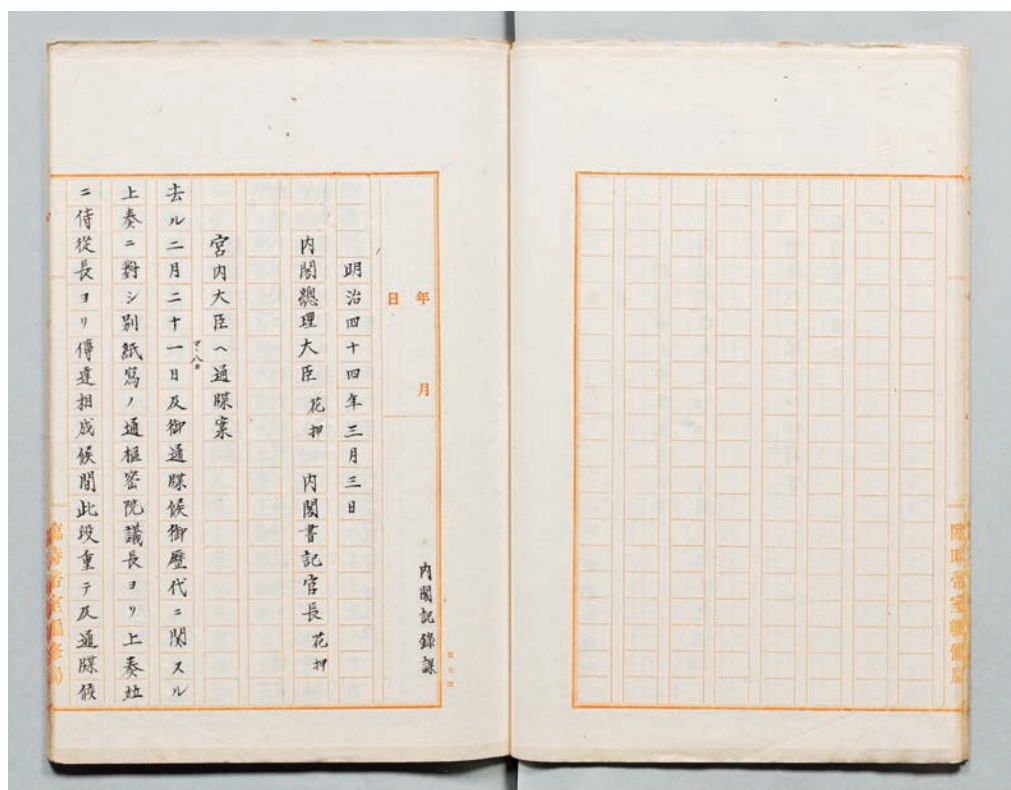 年月日
内閣記錄課
明治四十四年三月三日
内閣總理大臣 花押 内閣書記官長 花押
宮内大臣ヘ通牒案
去ル二月二十一日及御通牒候御歷代ニ関スル
上奏ニ對シ別紙寫ノ通樞密院議長ヨリ上奏竝
ニ侍從長ヨリ傳達相成候間此段重テ及通牒候
臨時帝室編修局
臨時帝室編修局